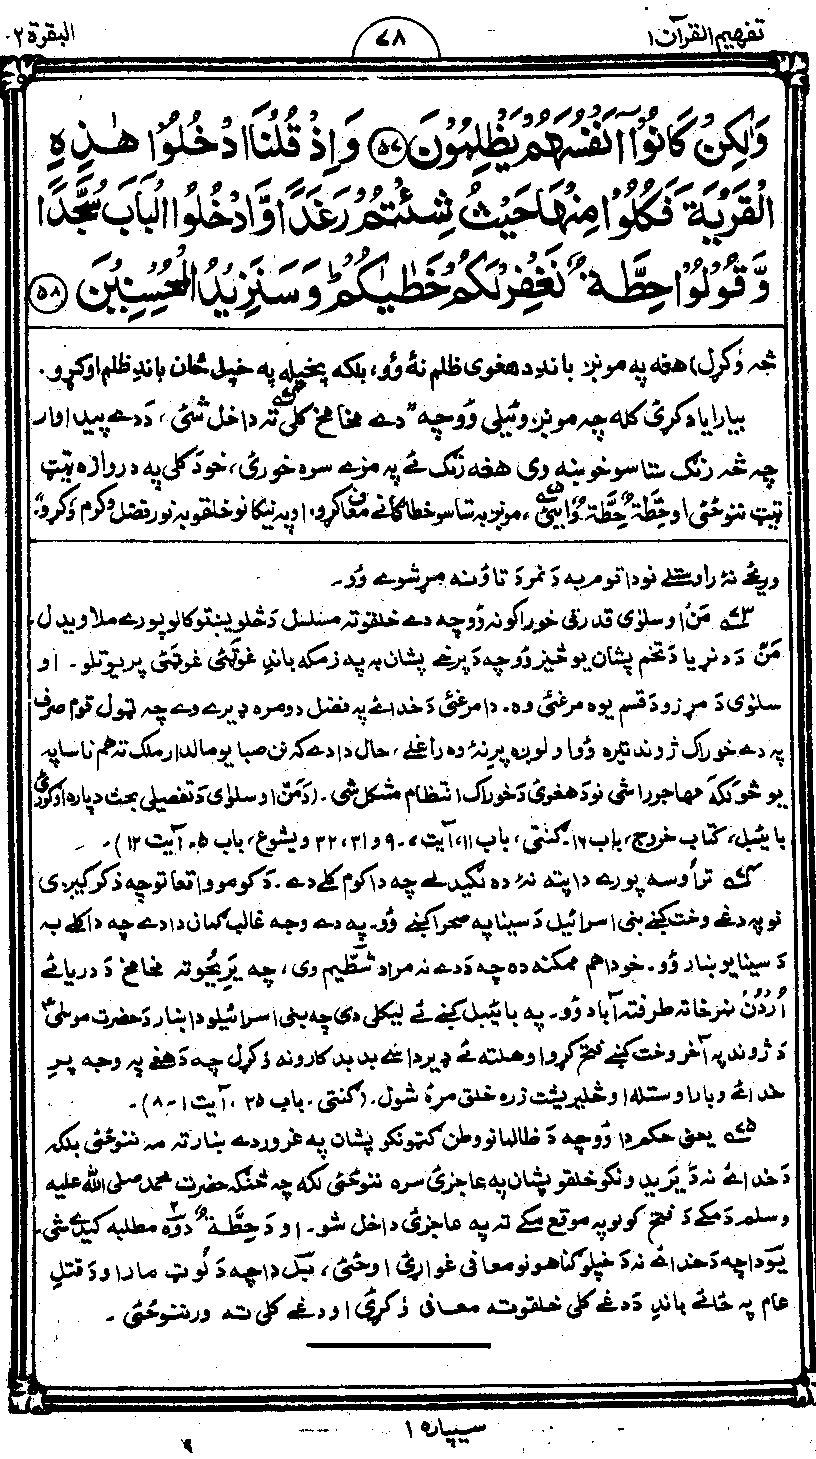 تفهیم القرآن ۱
۷۸
البقرة ۲
وَلٰكِنْ كَانُوْٓا اَنْفُسَهُمْ يَظْلِمُوْنَ ۵۷ وَاِذْ قُلْنَا ادْخُلُوْا هٰذِهِ
الْقَرْيَةَ فَكُلُوْا مِنْهَا حَيْثُ شِئْتُمْ رَغَدًا وَّادْخُلُوا الْبَابَ سُجَّدًا
وَّقُوْلُوْا حِطَّةٌ نَّغْفِرْ لَكُمْ خَطٰيٰكُمْ ؕ وَسَنَزِيْدُ الْمُحْسِنِيْنَ ۵۸
څه وکړل) هغه په مونږ باندِ د هغوی ظلم نهٔ وو، بلکه پخپله په خپل ځان باندِ ظلم اوکړو.
بیا رایاد کړئ کله چه مونږ وئیلی وو چه "دے مخامخ کلی ته داخل شئ، د دے پیداوار
چه څه رنګ ستاسو خوښه وی هغه رنګ ئے په مزے سره خورئ، خو د کلی په دروازه ټیټ
ټیټ ننوځئ او حِطَّةٌ حِطَّةٌ وایئ، مونږ به ستاسو خطاګانے معاف کړو، او په نیکانو خلقو به نور فضل و کرم وکړو"
وریځے نهٔ راوستلے نو دا قوم به د نمر د تاؤ نه مړ شوے وو.
۷۳ مَنّ او سلوٰی قدرتی خوراکونه وو چه دے خلقو ته مسلسل د څلویښتو کالو پورے ملاویدل
مَنّ د دنړیا د تخم پشان یو څیز وو چه د پرخے پشان به په زمکه باندِ غوټئی غوټئی پریوتلو. او
سلوٰی د مړز د قسم یوه مرغئی وه. دا مرغئی د خدائے په فضل دومره ډیرے وے چه ټول قوم صرف
په دے خوراک ژوند تیره وو او لوږه پرِ نهٔ وه راغلے، حال دا دے که نن صبا یو مالدار ملک ته هم ناساپه
یو څو لکه مهاجر راشی نو د هغوی د خوراک انتظام مشکل شی. (د مَنّ او سلوٰی د تفصیلی بحث دپاره اوګورئ
بائیبل، کتاب خروج، باب ۱۶. ګنتی، باب ۱۱، آیت ۷، ۹ و ۳۱، ۳۲ و یشوع، باب ۵. آیت ۱۲).
۷۴ تر اوسه پورے دا پته نهٔ ده لګیدلے چه دا کوم کلے دے. د کومو واقعاتو چه ذکر کیږی
نو په دغے وخت کښے بنی اسرائیل د سینا په صحرا کښے وو. په دے وجه غالب ګمان دا دے چه دا کلے به
د سینا یو ښار وو. خو دا هم ممکنه ده چه د دے نه مراد شطّیم وی، چه یریحو ته مخامخ د دریائے
اُردُن نمرخاته طرف ته آباد وو. په بائیبل کښے ئے لیکلی دی چه بنی اسرائیلو دا ښار د حضرت موسیٰؑ
د ژوند په آخر وخت کښے فتح کړو او هلته ئے ډیر دا سے بد بد کارونه وکړل چه د هغے په وجه پرِ
خدائے وبا راوستله او څلیریشت زره خلق مړهٔ شول. (ګنتی. باب ۲۵، آیت ۱-۸).
۷۵ یعنی حکم دا وو چه د ظالمانو وطن ګټونکو پشان په غرور دے ښار ته مه ننوځئی بلکه
د خدائے نه د یریدونکو خلقو پشان په عاجزئ سره ننوځئ لکه چه څنګه حضرت محمد صلی الله علیه
وسلم د مکے د فتح کولو په موقع مکے ته په عاجزئ داخل شو. او د حِطَّةٌ دوه مطلبه کیدے شی.
یو دا چه د خدائے نه د خپلو ګناهونو معافی غواړئ اوځئ، بل دا چه د لوټ مار او د قتلِ
عام په ځائے باندِ د دغے کلی خلقو ته معافی وکړئ او دغے کلی ته ورننوځئ.
سیپاره ۱
۹